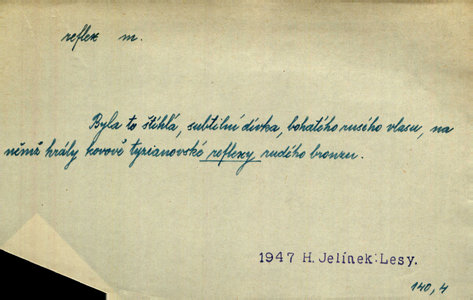 reflex m.
Byla to štíhlá, subtilní dívka, bohatého rusého vlasu, na
němž hrály kovově tyzianovské reflexy rudého bronzu.
1947 H. Jelínek: Lesy.
140,4